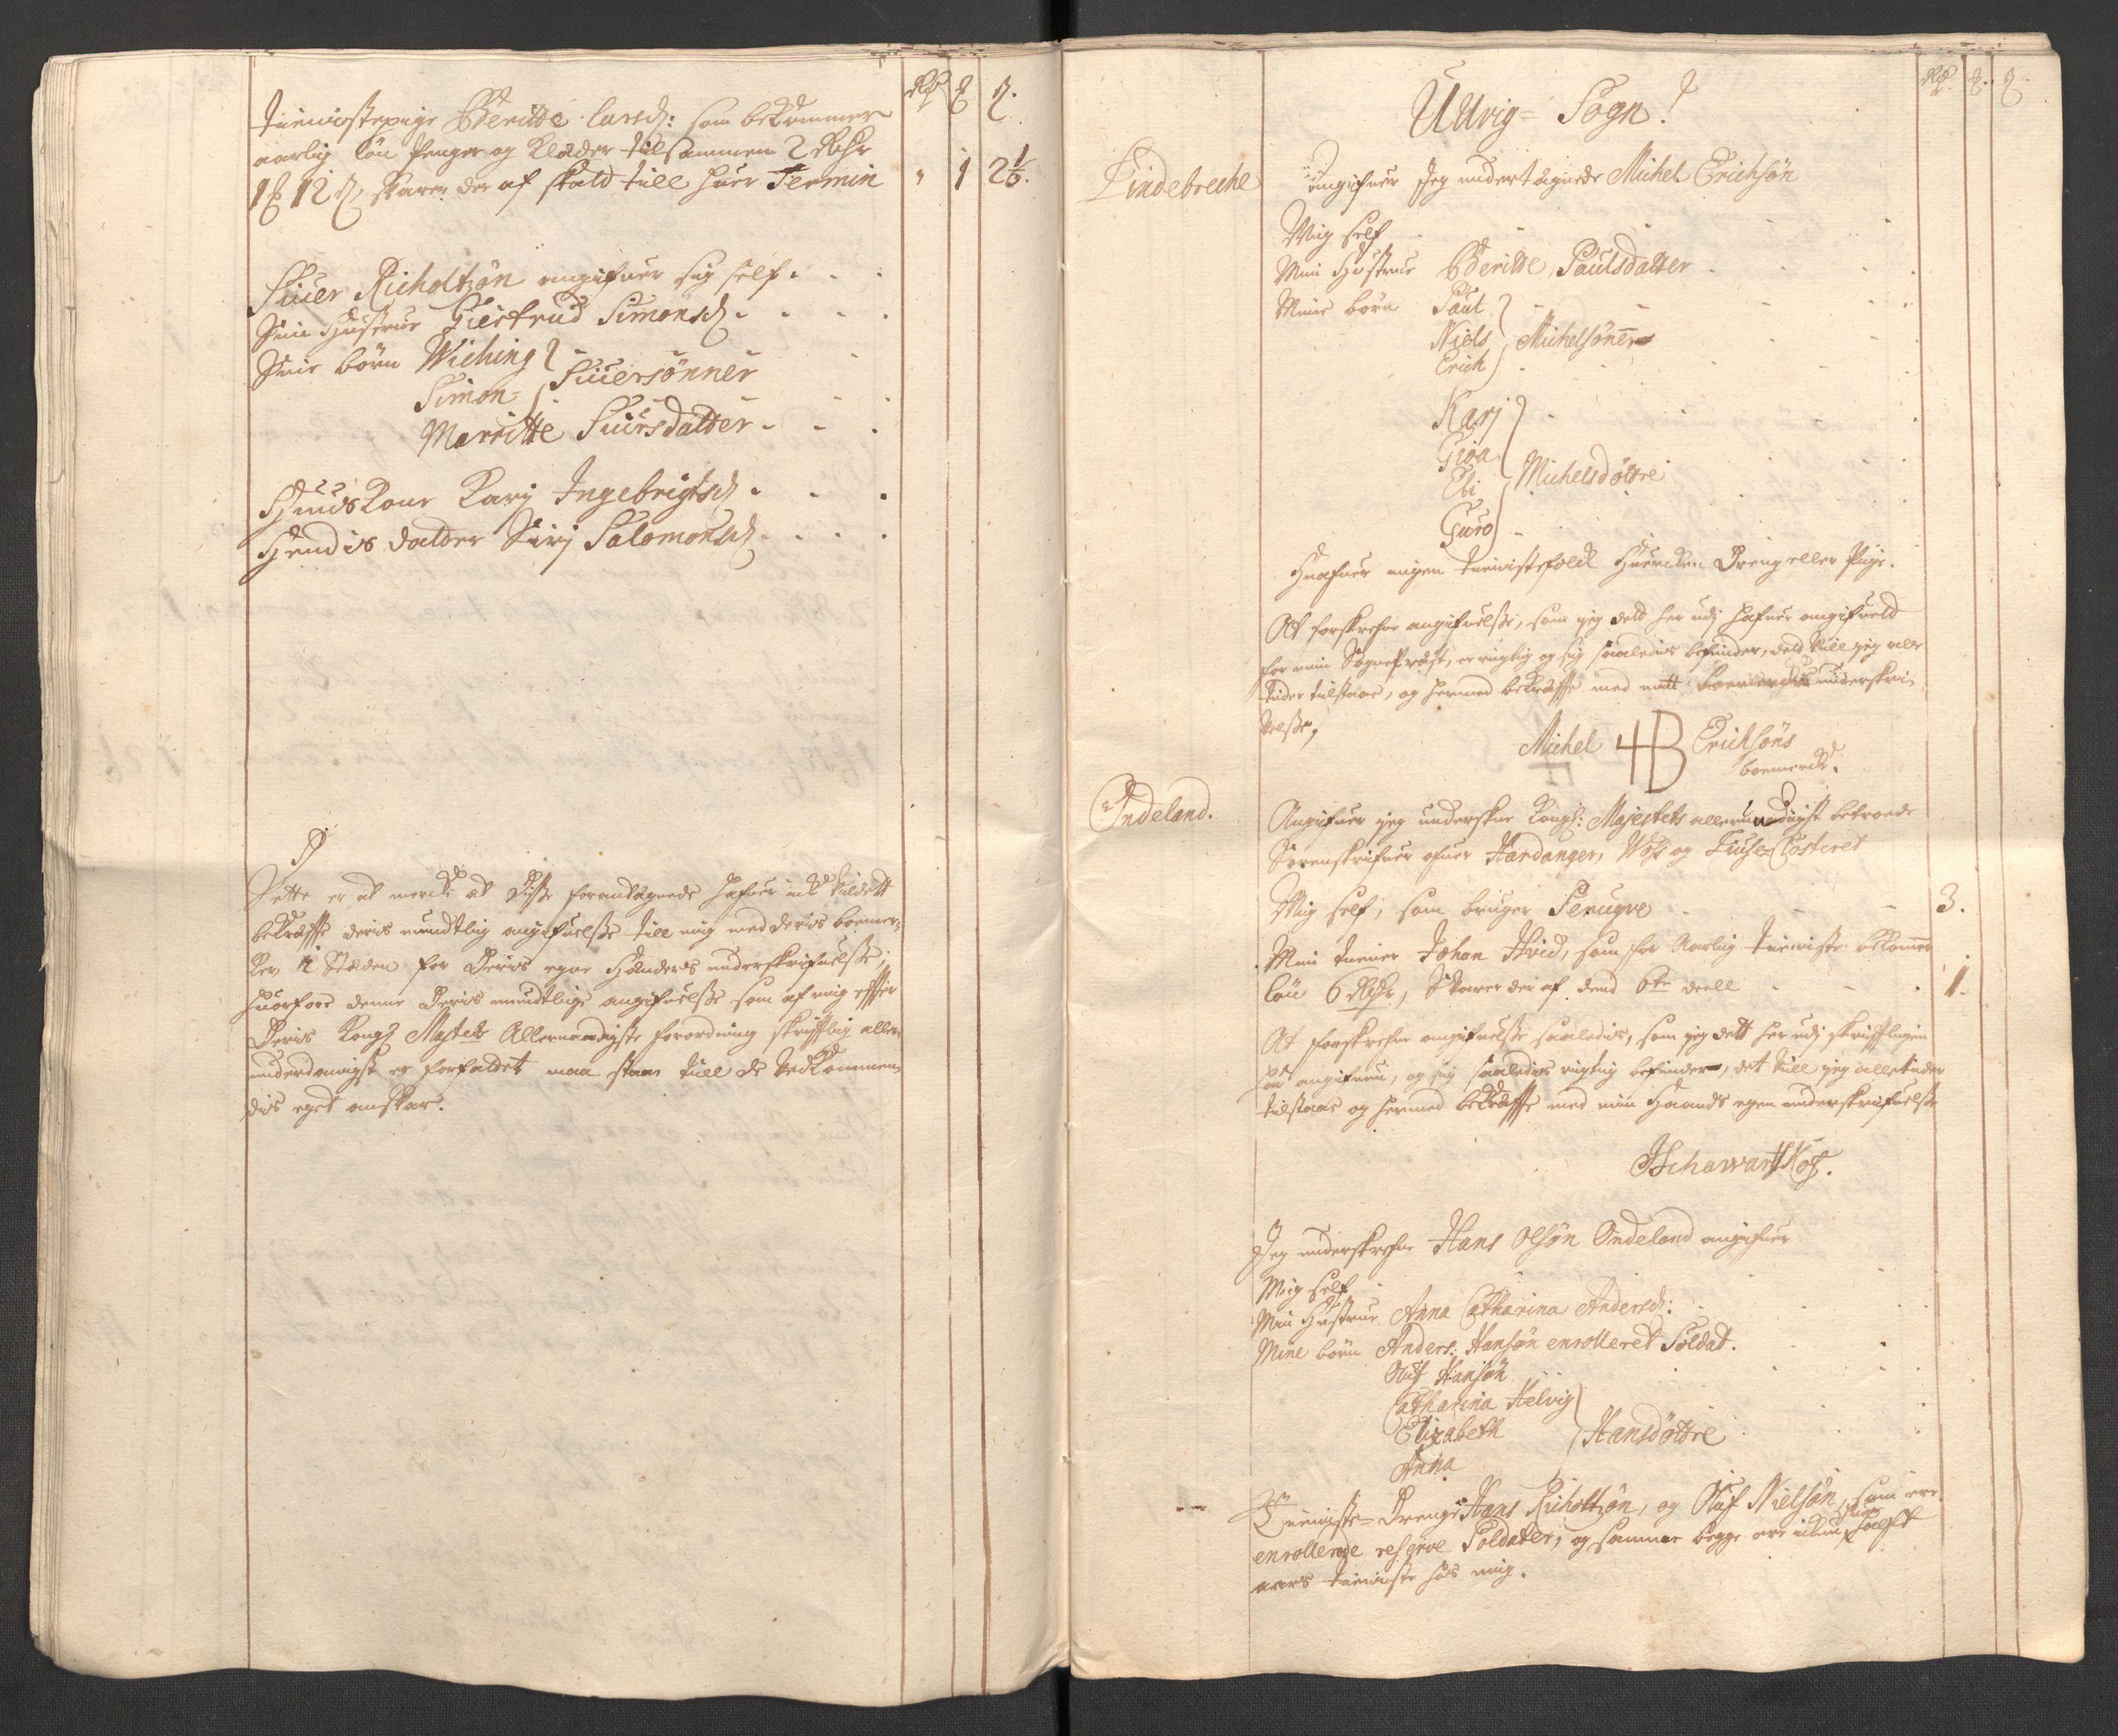 Rdr ß
tieniste pige Beritte larsd: som bekommer
aarlig løn penger og Klæder tilsammen 2 Rdr
1 12 ß, skarer der af skatt till huer Termin " 1 2
Siuer Richoltzøn angifuer sig self
Sin Hustrue Giertrud Simonsd
Sine børn Wiching
Simon Siuersønner
Marritte Siursdatter
Huuskone Kari Ingebrigtsd
Hendis datter Siri Salomonsd
Dette er at mercke at disse forantegnede hafuer icke villdett
bekræffte deris mundtlig angifuelsse till mig med deris bomer-
ker i Stæden for deris egne Hænders underskrifuelsse,
huorfore denne deris mundtlige angifuelsse som af mig effter
Deris Kongl Maytts Allernaadigste forordning skrifftlig aller-
underdanigst er forfattet maa staae till de Vedkommen-
dis eget anskar.
Rdr ß
Ullvig = Sogn!
Lindebrecke
angifuer Jeg undertegnede Michel Erichsøn
Mig self
Min Hustrue Beritte Paulsdatter
Mine børn Paul
Niels Michelsønner
Erich
Karj
Giøa
Eli Michelsdøttre
Guro
Hafuer ingen tienistefolck Huercken Dreng eller Pige.
At forskrefne angifuelsse, som jeg dett her udj hafuer angifuett
for min SognePræst, er rigtig og sig saaledis befinder, dett vill jeg alle
tider tilstaae, og hermed bekræffte med mitt underskri-
velsse,
Michel HB Erichsøns
bomerck.
Undeland.
Angifuer jeg underskrefne Kongl: Majestets allerunderdanigst betroede
Sorenskrifuer ofuer Hardanger, Woss og Liuse Closteret
Mig self, som bruger Peruque 3.
Min tiener Johan Hvid, som for Aarlig tieniste bekommer
løn 6 Rdr, Skarer der af dend 6te deell 1.
At forskrefne angifuelsse saaledis, som jeg dett her udj skrifftligen
har angifuen, og sig saaledis rigtig befinder, det vill jeg alletider
tilstaae og hermed bekræffte med min Haands egen underskrifuelsse
JSchwartzkopf.
Jeg underskrefne Hans Olsøn Undeland angifuer
Mig self
Min Hustrue Anna Catharina Andersd:
Mine børn Anders Hansøn enrolleret Soldat.
Oluf Hansøn
Catharina Helvig
Elizabeth Hansdøttre
Anna
Tieniste-Drenge Hans Richoltzøn, og Oluf Nielsøn, som ere
enrollerede reserve Soldater, og samme begge ere ickun halft
aars tieniste hos mig.